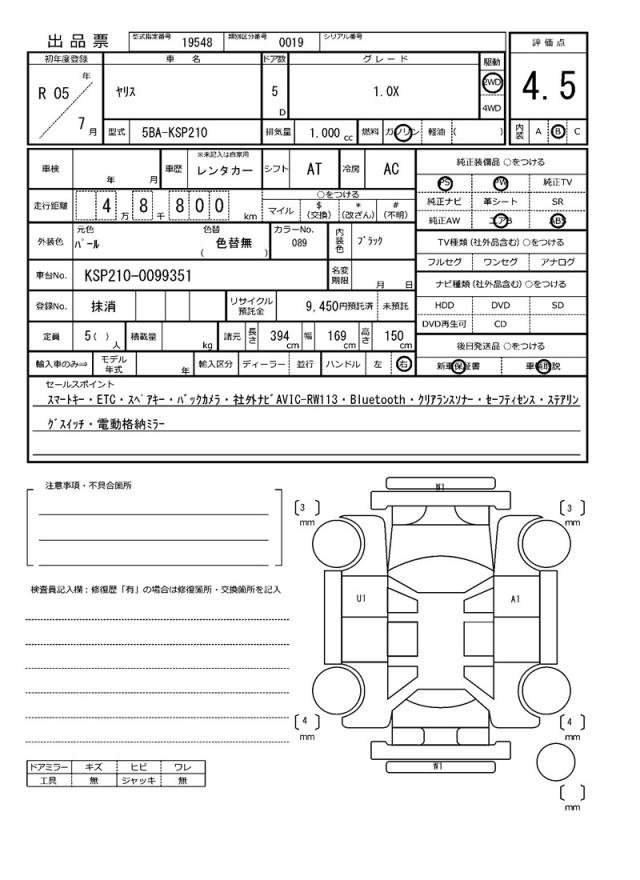 出品票 型式指定番号 19548 類別区分番号 0019 シリアル番号
評価点
4.5
内装 A B C
初年度登録 車名 ドア数 グレード 駆動
R 05 年 7 月 ヤリス 5 D 1.0X 2WD 4WD
型式 5BA-KSP210 排気量 1.000 cc 燃料 ガソリン 軽油 ( )
車検 年 月 車歴 ※未記入は自家用 レンタカー シフト AT 冷房 AC
走行距離 4 万 8 千 8 0 0 km ○をつける マイル $ (交換) * (改ざん) # (不明)
外装色 元色 パール 色替 色替無 ( ) カラーNo. 089 内装色 ブラック
車台No. KSP210-0099351 名変期限 月 日
登録No. 抹消 リサイクル預託金 9,450円預託済 未預託
定員 5( ) 人 積載量 kg 諸元 長さ 394 cm 幅 169 cm 高さ 150 cm
輸入車のみ⇒ モデル年式 年 輸入区分 ディーラー 並行 ハンドル 左 右
純正装備品 ○をつける
PS PW 純正TV
純正ナビ 革シート SR
純正AW エアB ABS
TV種類 (社外品含む) ○をつける
フルセグ ワンセグ アナログ
ナビ種類 (社外品含む) ○をつける
HDD DVD SD
DVD再生可 CD
後日発送品 ○をつける
新車保証書 車輌取説
セールスポイント
スマートキー・ETC・スペアキー・バックカメラ・社外ナビAVIC-RW113・Bluetooth・クリアランスソナー・セーフティセンス・ステアリン
グスイッチ・電動格納ミラー
注意事項・不具合箇所
検査員記入欄：修復歴「有」の場合は修復箇所・交換箇所を記入
ドアミラー キズ ヒビ ワレ
工具 無 ジャッキ 無
W1
[ 3 ] mm [ 3 ] mm
U1 A1
[ 4 ] mm [ 4 ] mm
W1
[ ] mm